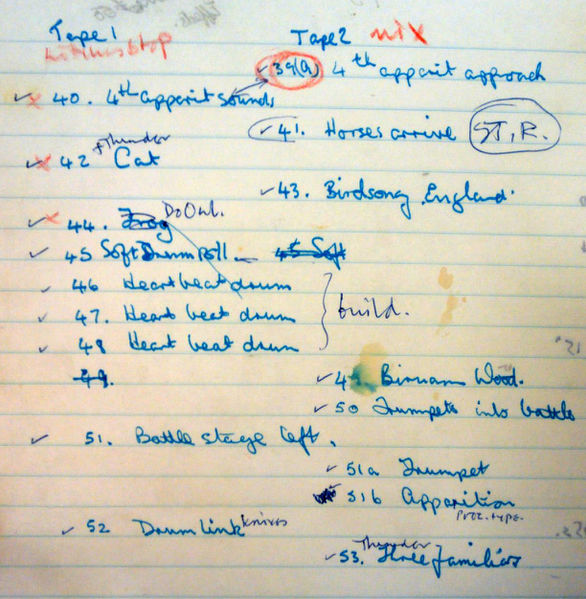 Tape 1 Tape 2 mix
39(a) 4th apparit approach
40. 4th apparit sounds
41. Horses arrive ST.R.
+ Thunder
42 Cat
43. Birdsong England.
44. Frog Do Owl.
45 Soft Drum roll - 45 Soft
46 Heart beat drum
47. Heart beat drum build.
48 Heart beat drum
49. 49. Birnam Wood.
50 Trumpets into battle
51. Battle stage left.
51a Trumpet
51b Apparition
Proc. type.
52 Drum link knives
Thunder
53. Three familiars